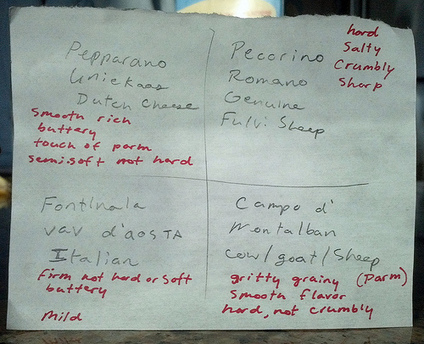 Pepparano
Uniekaas
Dutch Cheese
smooth rich
buttery
touch of parm
semi-soft not hard
Pecorino
Romano
Genuine
Fulvi Sheep
hard
Salty
Crumbly
Sharp
Fontinala
vav d'aosta
Italian
firm not hard or soft
buttery
mild
Campo d'
Montalban
Cow/goat/Sheep
gritty grainy (Parm)
smooth flavor
hard, not crumbly